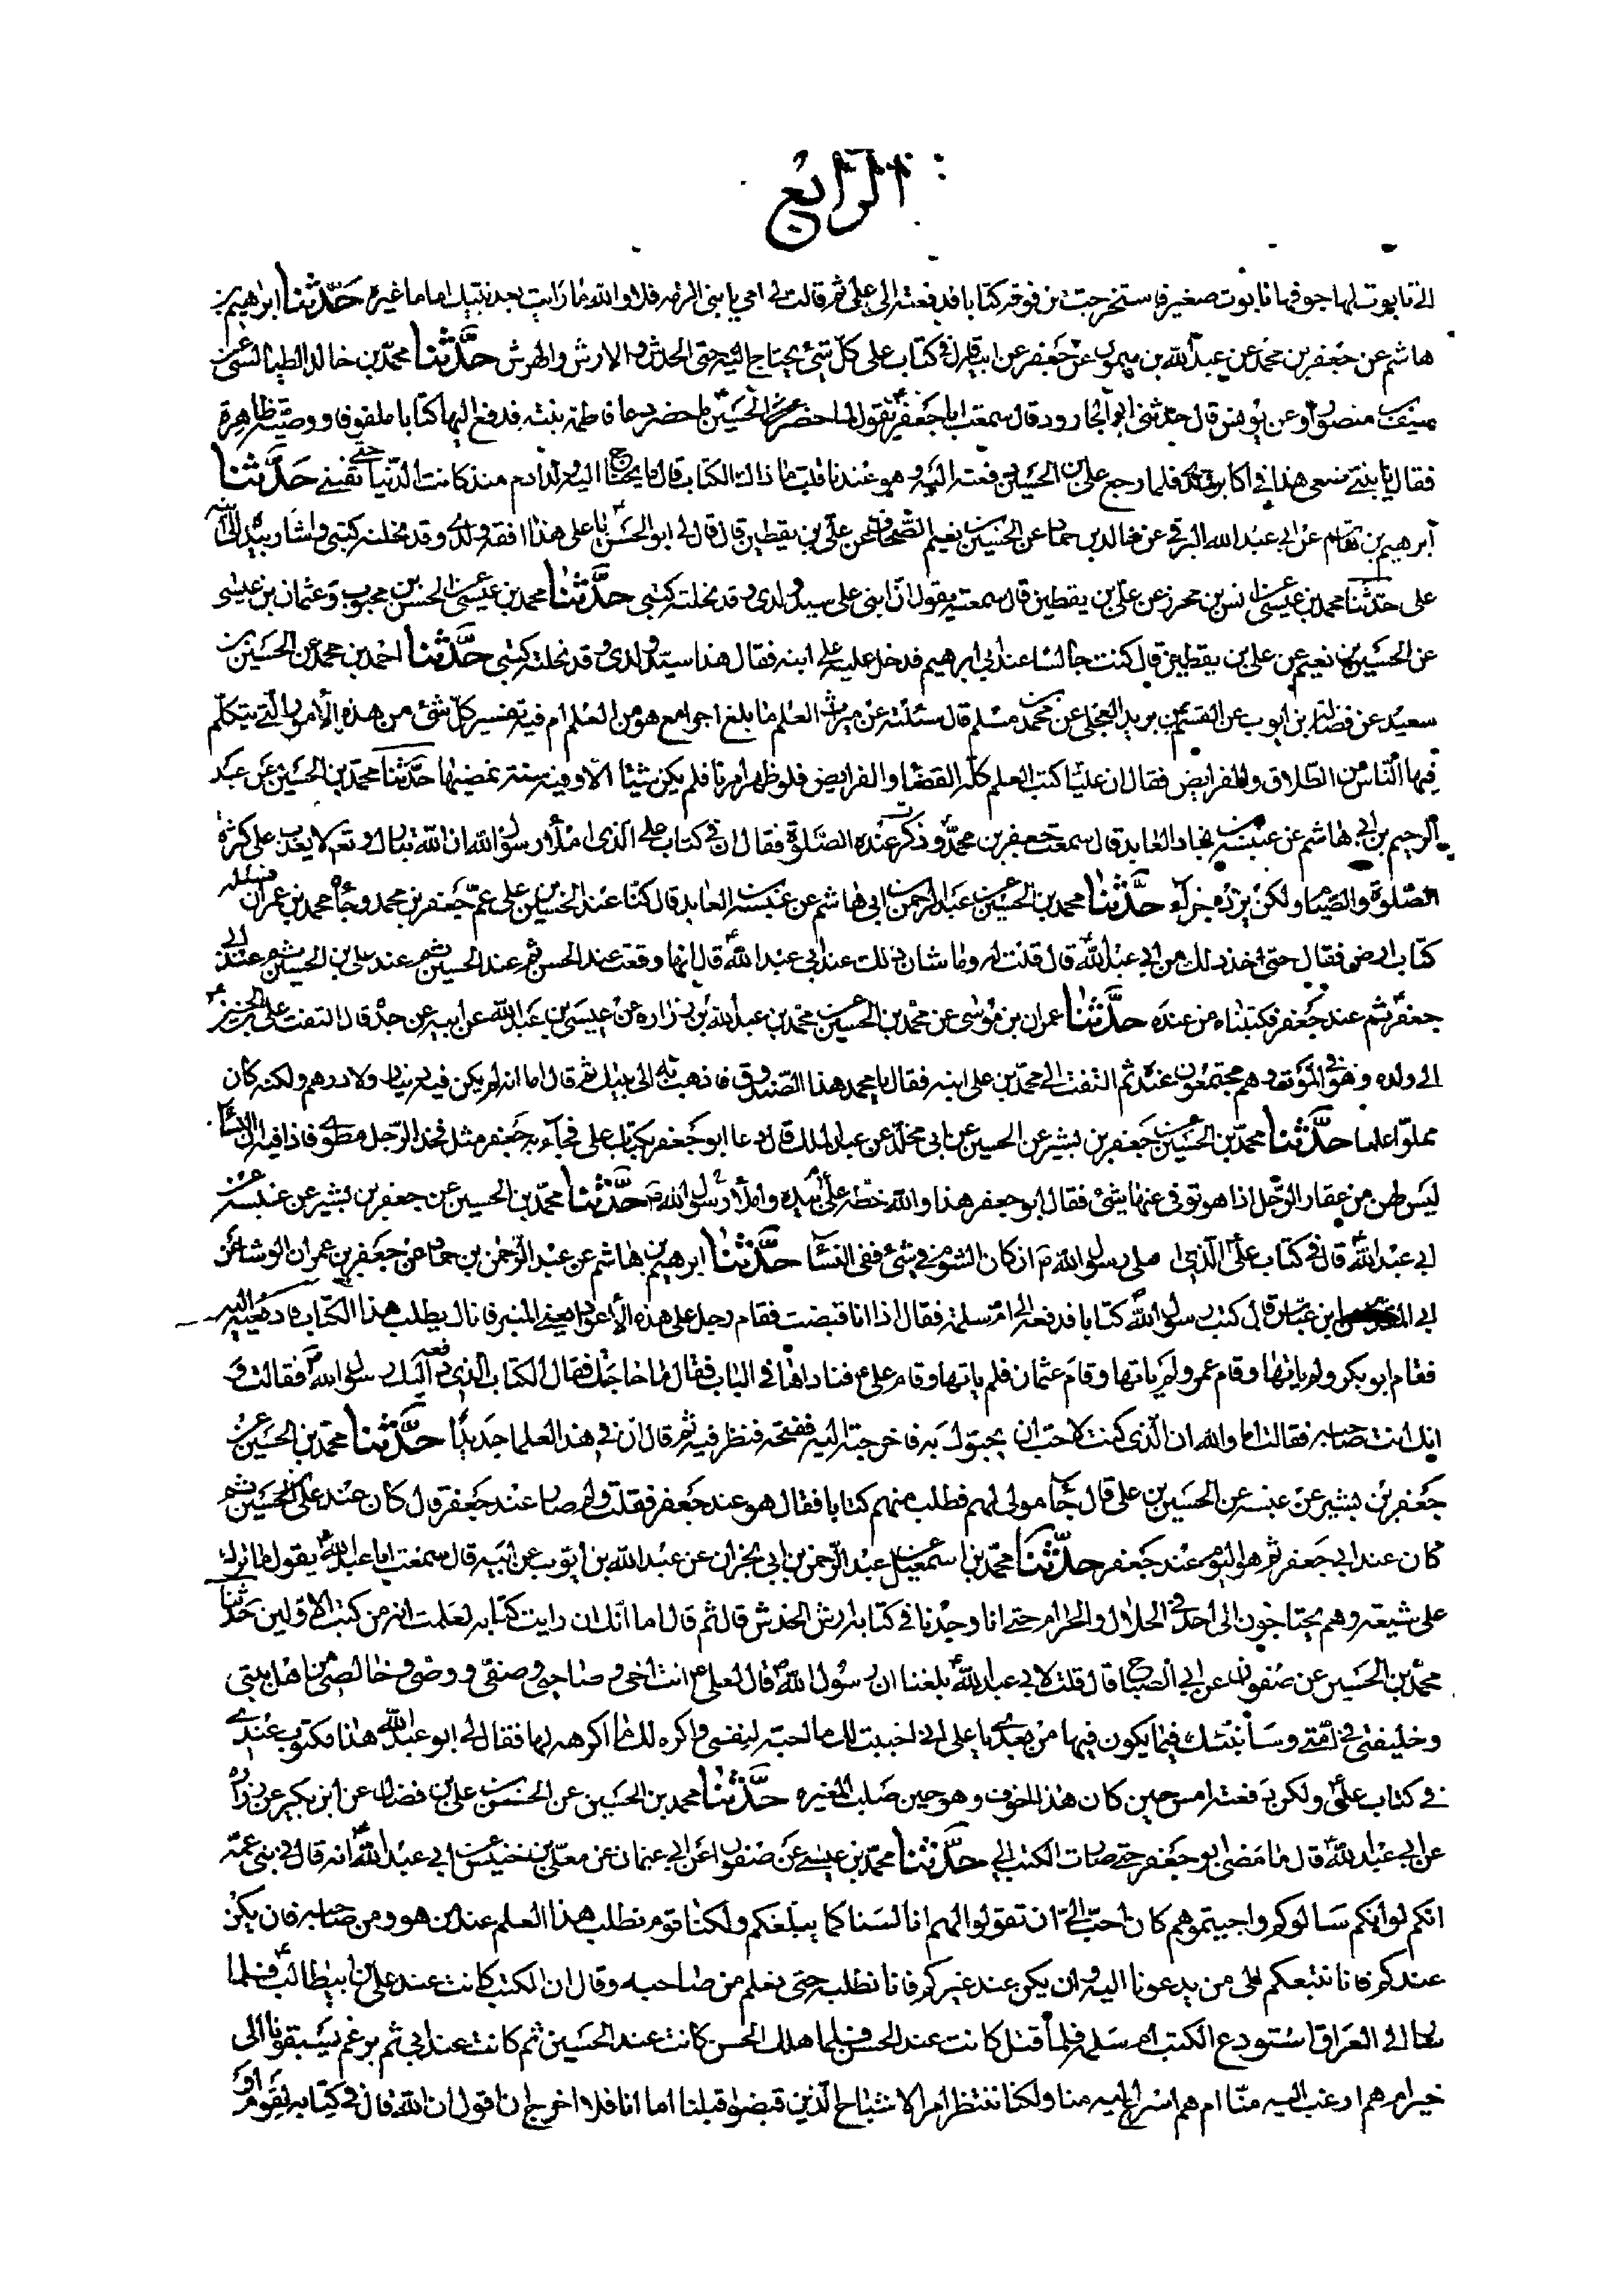 الرابع
الى تابوت لها جوفها تابوت صغير فاستخرجت من فوقه كتابا فدفعته الى على ثم قالت لى امى يا بنى الزمه فلا والله ما رايت بعد نبيك اماما غيره حدّثنا ابراهيم بن
هاشم عن جعفر بن محمد عن عبد الله بن ميمون عن جعفر عن ابيه قال فى كتاب على كلّ شئ يحتاج اليه حتى الخدش والارش والهرش حدّثنا محمّد بن خالد الطيالسى عن
سيف منصور او عن يونس قال حدّثنى ابو الجارود قال سمعت ابا جعفر يقول لما حضر الحسين ما حضر دعا فاطمة بنته فدفع اليها كتابا ملفوفا ووصيّة ظاهرة
فقال يا بنتى ضعى هذا فى اكابر ولدى فلما رجع على بن الحسين دفعته اليه وهو عندنا قلت ما ذاك الكتاب قال ما يحتاج اليه ولد ادم منذ كانت الدّنيا حتى تفنى حدّثنا
ابرهيم بن هاشم عن ابى عبد الله البرقى عن خالد بن حماد عن الحسين بن نعيم الصّحاف عن على بن يقطين قال قال لى ابو الحسن يا على هذا افقه ولدى وقد نحلته كتبى واشار بيده الى ابنه
على حدّثنا محمد بن عيسى عن انس بن محرز عن على بن يقطين قال سمعته يقول ان ابنى على سيد ولدى وقد نحلته كتبى حدّثنا محمد بن عيسى عن الحسن بن محبوب وعثمان بن عيسى
عن الحسين بن نعيم عن على بن يقطين قال كنت جالسا عند ابى ابرهيم فدخل عليه على ابنه فقال هذا سيّد ولدى وقد نحلته كتبى حدّثنا احمد بن محمد عن الحسين بن
سعيد عن فضالة بن ايوب عن القسم بن بريد العجلى عن محمد بن مسلم قال سئلته عن ميراث العلم ما بلغ اجوامع هو من العلم ام فيه تفسير كلّ شئ من هذه الأمور الّتى يتكلّم
فيها النّاس من الطّلاق والفرايض فقال ان عليّا كتب العلم كلّه القضا والفرايض فلو ظهر امرنا فلم يكن شيئا الّا وفيه سنة نمضيها حدّثنا محمّد بن الحسين عن عبد
الرحيم بن ابى هاشم عن عنبسة بن بجاد العابد قال سمعت جعفر بن محمّد وذكرت عنده الصّلوة فقال ان فى كتاب على الّذى املأ رسول الله ان الله تبارك وتعالى لا يعذب على كثرة
الصّلوة والصّيام ولكن يزده جزآء حدّثنا محمد بن الحسين عن عبد الرحمن بن ابى هاشم عن عنبسة العابد قال كنّا عند الحسين بن على عمّ جعفر بن محمد وجآء محمد بن عمران فسئله
كتاب ارض فقال حتى اخذ ذلك من ابى عبد الله قال قلت له وما شان ذلك عند ابى عبد الله قال انها وقعت عند الحسن ثم عند الحسين ثم عند على بن الحسين ثم عند ابى
جعفر ثم عند جعفر فكتبناه من عنده حدّثنا عمران بن موسى عن محمّد بن الحسين عن محمد بن عبد الله بن زراره عن عيسى بن عبد الله عن ابيه عن جدّه قال التفت على بن الحسين
الى ولده وهو فى الموت وهم مجتمعون عنده ثم التفت الى محمّد بن على ابنه فقال يا محمد هذا الصّندوق فاذهب به الى بيتك ثم قال اما انه لم يكن فيه دينار ولا درهم ولكنه كان
مملوّا علما حدّثنا محمّد بن الحسين عن جعفر بن بشير عن الحسين عن ابى مخلّد عن عبد الملك قال دعا ابو جعفر بكتاب على فجآء به جعفر مثل فخذ الرّجل مطوى فاذا فيه ان النسآء
ليس لهن من عقار الرّجل اذا هو توفى عنها شئ فقال ابو جعفر هذا والله خطّه على بيده واملأ رسول الله حدّثنا محمّد بن الحسين عن جعفر بن بشير عن عنبسة عن
ابى عبد الله قال فى كتاب على الّذى املى رسول الله ان كان الشوم فى شئ ففى النسآ حدّثنا ابرهيم بن هاشم عن عبد الرّحمن بن حماد عن جعفر بن عمران الوشا عن
ابى المقدام ابن عبّاس قال كتب رسول الله كتابا فدفعه الى ام سلمة فقال اذا انا قبضت فقام رجل على هذه الأعواد يعنى المنبر فاتاك يطلب هذا الكتاب فادفعيه اليه
فقام ابو بكر ولم ياتها وقام عمر ولم ياتها وقام عثمان فلم ياتها وقام على ع فناداها فى الباب فقال ما حاجتك فقال الكتاب الّذى دفعه اليك رسول الله فقالت و
انك انت صاحبه فقالت اما والله ان الّذى كنت لاحب ان يحبوك به فاخرجته اليه ففتحه فنظر فيه ثم قال ان فى هذا لعلما جديدا حدّثنا محمد بن الحسين عن
جعفر بن بشير عن عنبسه عن الحسين بن على قال جآء مولى لهم فطلب منهم كتابا فقال هو عند جعفر فقلت ولم صار عند جعفر قال كان عند على بن الحسين ثم
كان عند ابى جعفر ثم هو اليوم عند جعفر حدّثنا محمّد بن اسمعيل عن عبد الرّحمن بن ابى نجران عن عبد الله بن ايّوب عن ابيه قال سمعت ابا عبد الله يقول ما ترك
على شيعته وهم يحتاجون الى احد فى الحلال والحرام حتى انا وجدنا فى كتابه ارش الخدش قال ثم قال اما انك ان رايت كتابه لعلمت انه من كتب الاوّلين حدّثنا
محمّد بن الحسين عن صفوان عن ابى الصباح قال قلت لابى عبد الله بلغنا ان رسول الله قال لعلى ع انت اخى وصاحبى وصفيّى ووصيى وخالصى من اهل بيتى
وخليفتى فى امّتى وسأنبّئك فيما يكون فيها من بعدى يا على انى احببت لك ما احبّه لنفسى واكره لك ما اكرهه لها فقال لى ابو عبد الله هذا مكتوب عندى
فى كتاب على ولكن دفعته امس حين كان هذا الخوف وهو حين صلب المغيره حدّثنا محمد بن الحسين عن الحسن بن على بن فضال عن ابن بكير عن زراره
عن ابى عبد الله قال ما مضى ابو جعفر حتى صارت الكتب الى حدّثنا محمّد بن عيسى عن صفوان عن ابى عثمان عن معلّى بن خنيس عن ابى عبد الله انه قال لبنى عمّه
انكم لو انكم سالوكم واجبتموهم كان احبّ الىّ ان تقولوا لهم انا لسنا كما يبلغكم ولكنا قوم نطلب هذا العلم عند من هو ومن صاحبه فان يكن
عندكم فانا نتبعكم الى من يدعونا اليه وان يكن عند غيركم فانا نطلبه حتى نعلم من صاحبه وقال ان الكتب كانت عند على بن ابيطالب فلما
سار الى العراق استودع الكتب ام سلمه فلمّا قتل كانت عند الحسن فلما هلك الحسن كانت عند الحسين ثم كانت عند ابى ثم برغم يسبقونا الى
خير ام هم ارغب اليه منّا ام هم اسرع اليه منا ولكنا ننتظر امر الاشياخ الّذين قبضوا قبلنا اما انا فلا احرج ان اقول ان الله قال فى كتابه لقوم او